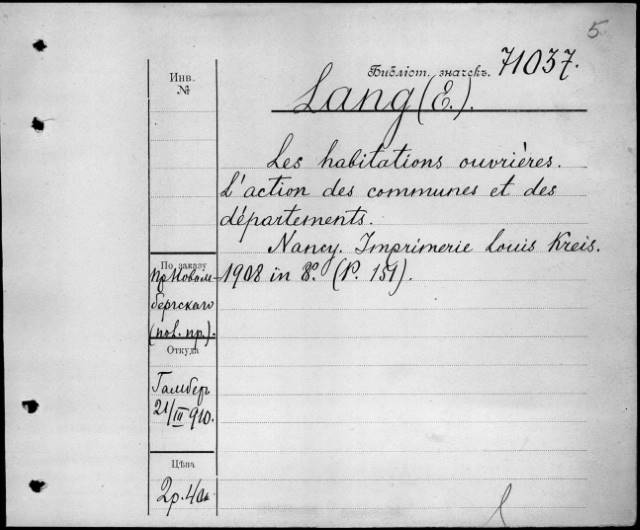 5
Библіот. значекъ. 71037.
Инв.
№
Lang (E.).
Les habitations ouvrières.
L'action des communes et des
départements.
Nancy. Imprimerie Louis Kreis.
1908 in 8º. (P. 151).
По заказу
пр Новом-
бергскаго
(pol. пр.).
Откуда
Гамбер
21/III 910.
Цѣна
2р. 40к